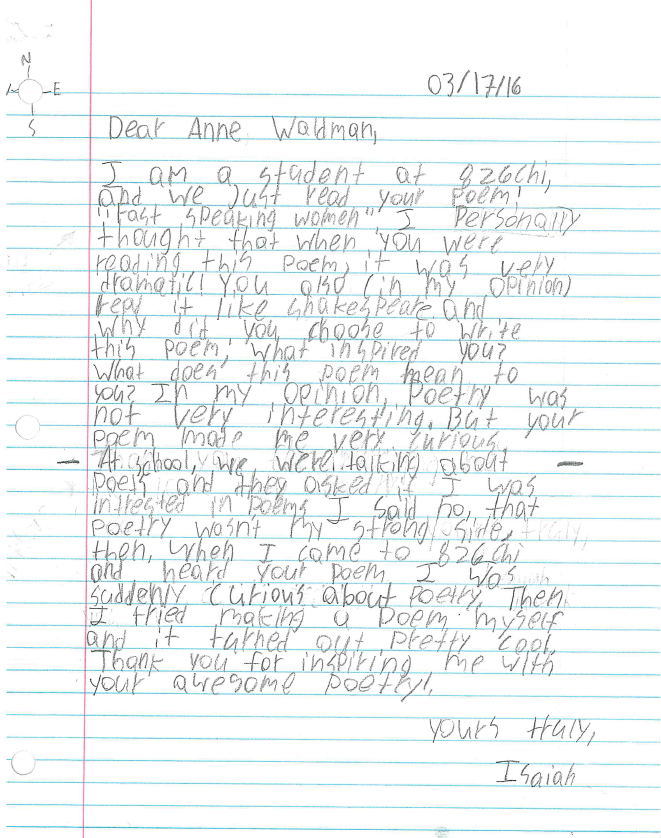 N
E
S
03/17/16
Dear Anne Waldman,
I am a student at 826Chi,
and we Just read your Poem!
"Fast speaking women" I Personally
thought that when you were
reading this Poem, it was very
dramatic! You also (in my opinion)
read it like shakespeare and
Why did you choose to write
this poem, What inspired you?
What does this poem mean to
you? In my opinion, Poetry was
not very interesting. But your
poem made me very curious.
At school, we were talking about
poetry and they asked if I was
intrested in Poems I said no, that
poetry wasn't my strong side,
then, when I came to 826Chi
and heard your poem I was
suddenly curious about Poetry. Then
I tried making a poem myself
and it turned out pretty cool.
Thank you for inspiring me with
your awesome poetry!
yours truly,
Isaiah